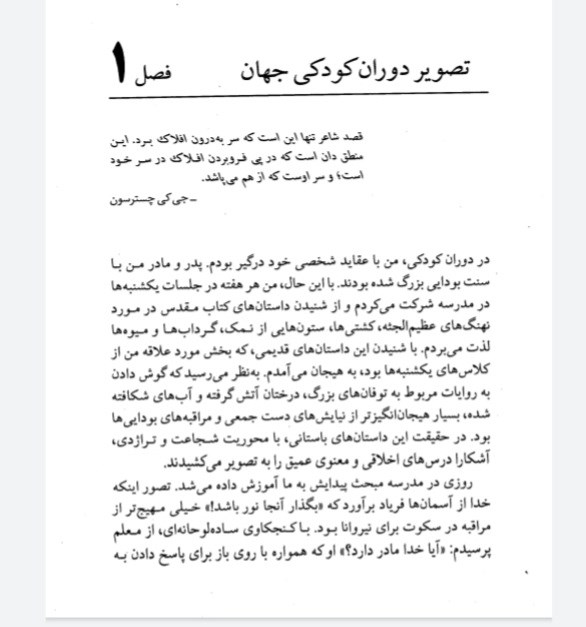 فصل ۱ تصویر دوران کودکی جهان
قصد شاعر تنها این است که سر به‌درون افلاک برد. این
منطق دان است که در پی فروبردن افلاک در سر خود
است؛ و سر اوست که از هم می‌پاشد.
ـ جی کی چسترسون
در دوران کودکی، من با عقاید شخصی خود درگیر بودم. پدر و مادر من با
سنت بودایی بزرگ شده بودند. با این حال، من هر هفته در جلسات یکشنبه‌ها
در مدرسه شرکت می‌کردم و از شنیدن داستان‌های کتاب مقدس در مورد
نهنگ‌های عظیم‌الجثه، کشتی‌ها، ستون‌هایی از نمک، گرداب‌ها و میوه‌ها
لذت می‌بردم. با شنیدن این داستان‌های قدیمی، که بخش مورد علاقه من از
کلاس‌های یکشنبه‌ها بود، به هیجان می‌آمدم. به‌نظر می‌رسید که گوش دادن
به روایات مربوط به توفان‌های بزرگ، درختان آتش گرفته و آب‌های شکافته
شده، بسیار هیجان‌انگیزتر از نیایش‌های دست جمعی و مراقبه‌های بودایی‌ها
بود. در حقیقت این داستان‌های باستانی، با محوریت شجاعت و تراژدی،
آشکارا درس‌های اخلاقی و معنوی عمیق را به تصویر می‌کشیدند.
روزی در مدرسه مبحث پیدایش به ما آموزش داده می‌شد. تصور اینکه
خدا از آسمان‌ها فریاد برآورد که «بگذار آنجا نور باشد!» خیلی مهیج‌تر از
مراقبه در سکوت برای نیروانا بود. با کنجکاوی ساده‌لوحانه‌ای، از معلم
پرسیدم: «آیا خدا مادر دارد؟» او که همواره با روی باز برای پاسخ دادن به